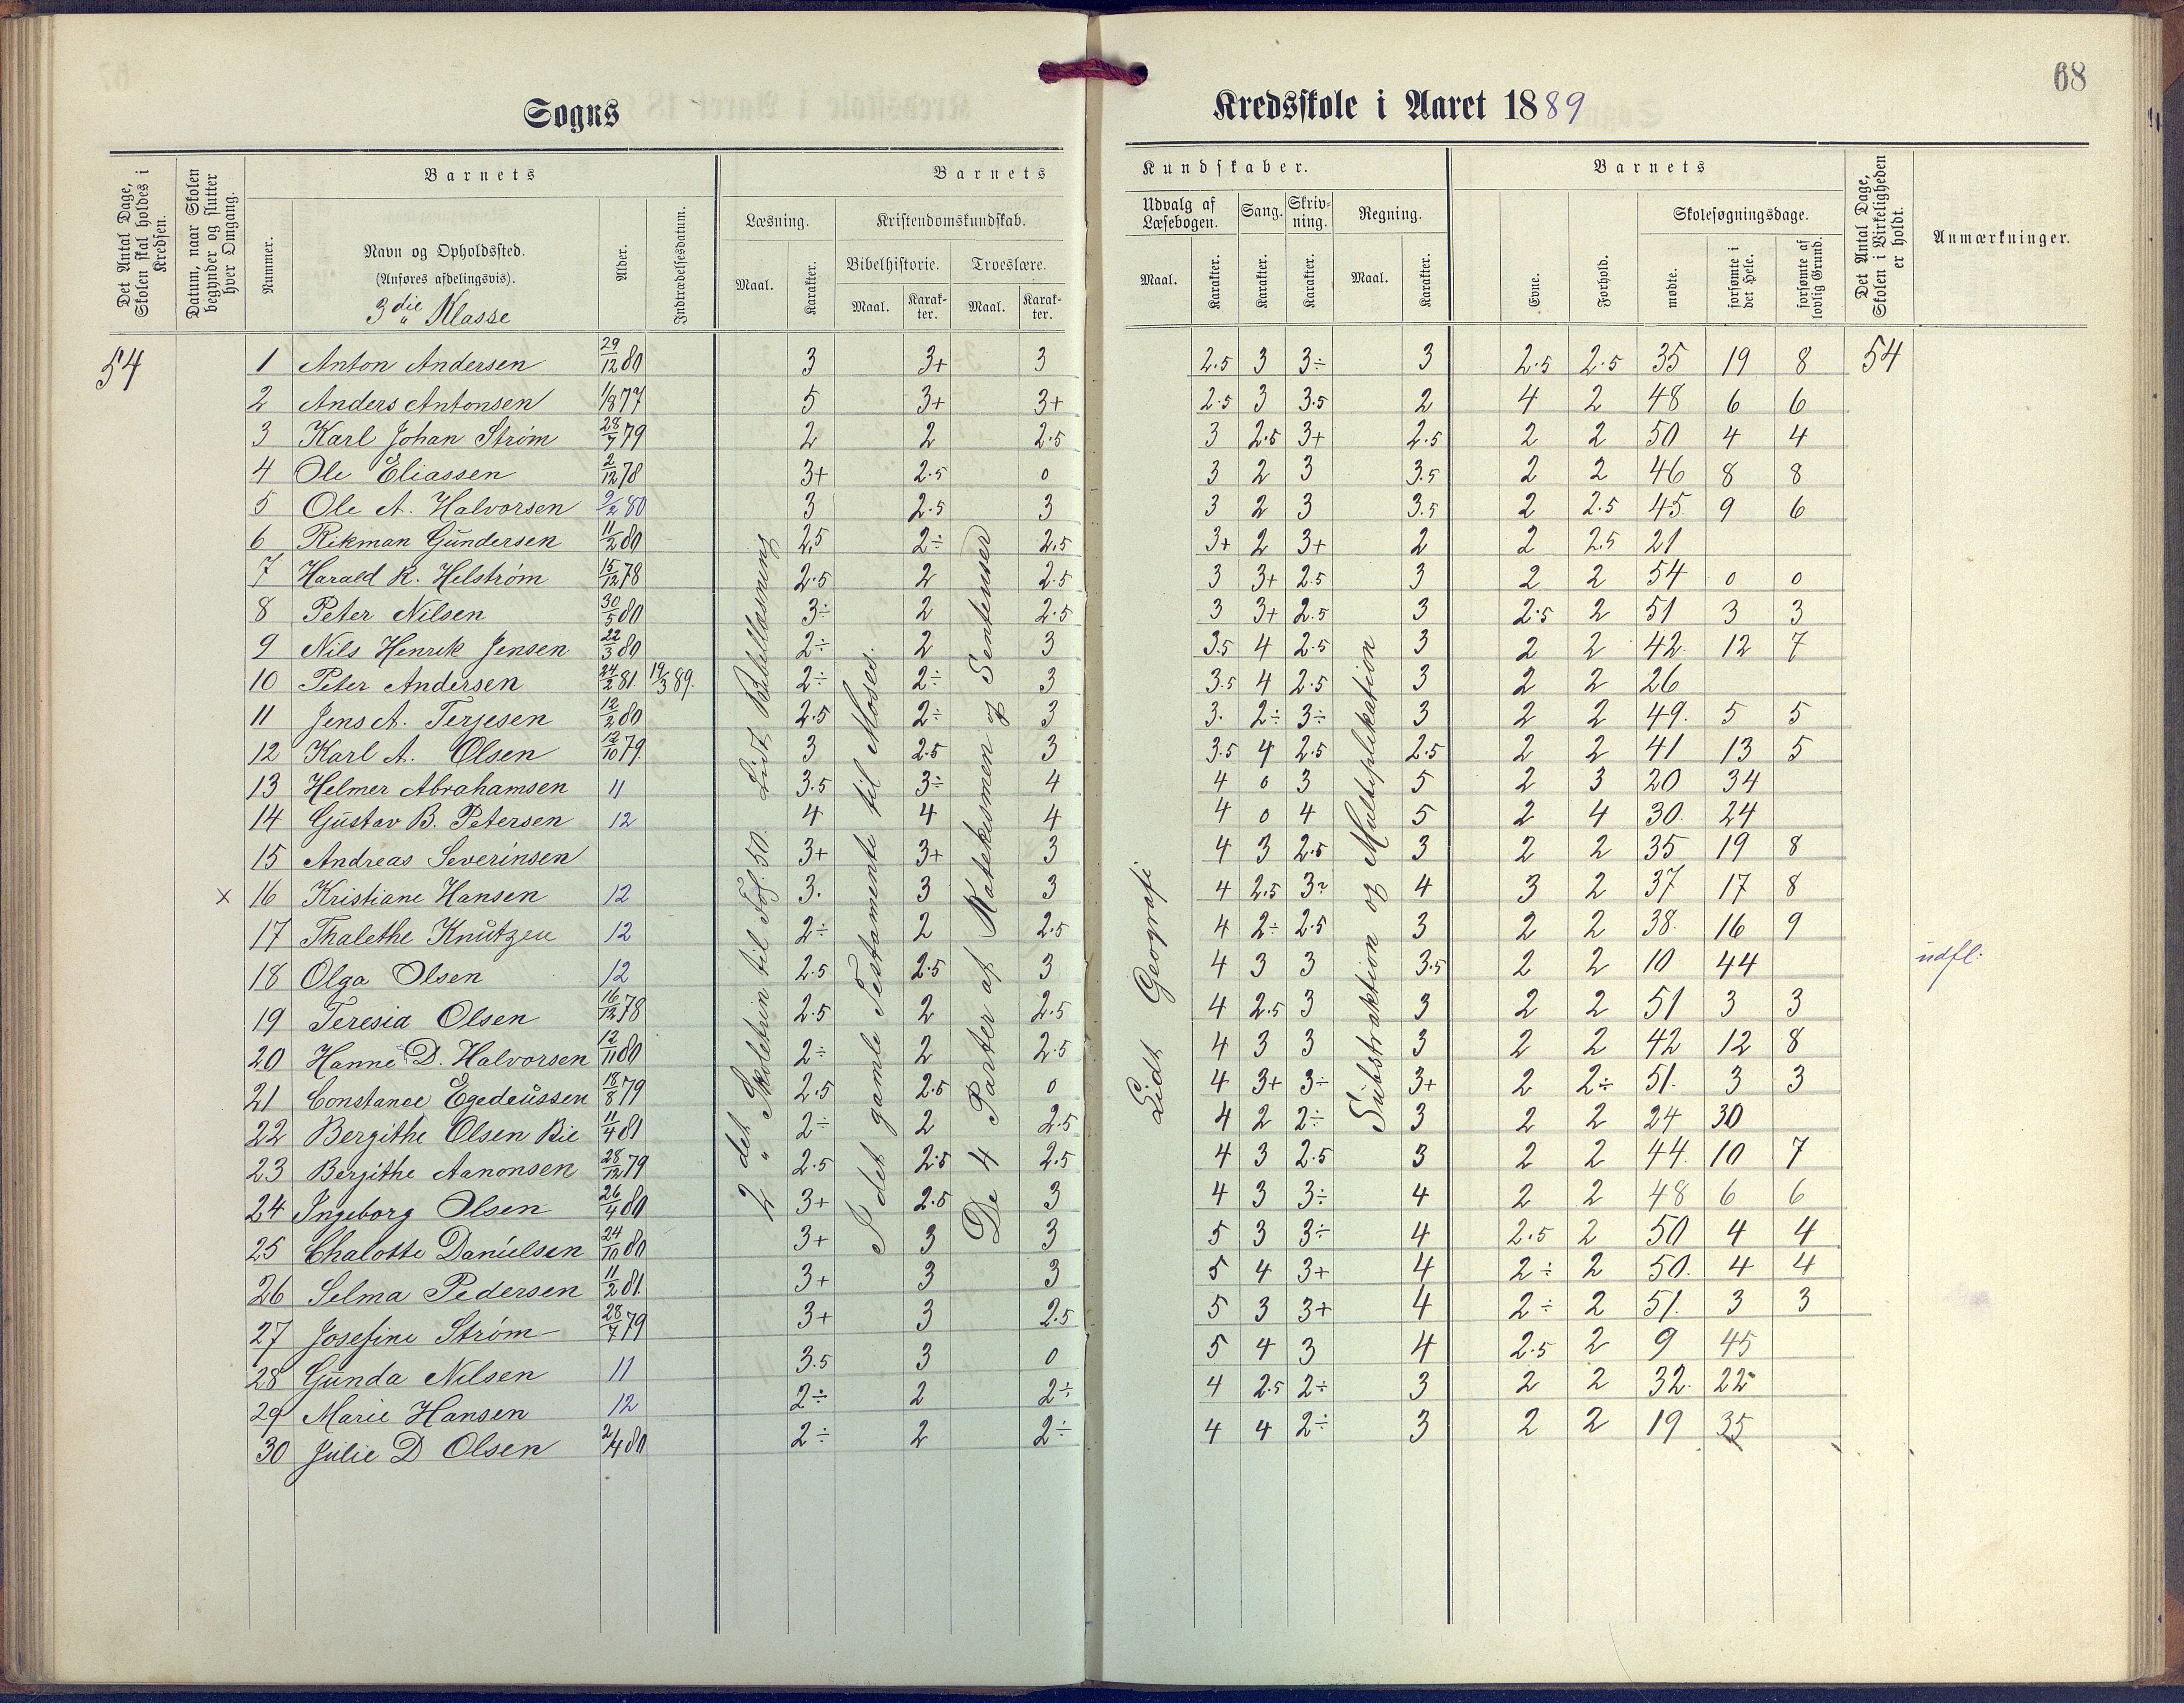 68
Sogns Kredsskole i Aaret 1889
Det Antal Dage, Skolen skal holdes i Kredsen.
Datum, naar Skolen begynder og slutter hver Omgang.
Barnets
Nummer.
Navn og Opholdssted.
(Anføres afdelingsvis).
3die Klasse
Alder.
Indtrædelsesdatum.
Barnets Kundskaber.
Læsning.
Maal.
Karakter.
Kristendomskundskab.
Bibelhistorie.
Maal.
Karakter.
Troeslære.
Maal.
Karakter.
Udvalg af Læsebogen.
Maal.
Karakter.
Sang.
Karakter.
Skrivning.
Karakter.
Regning.
Maal.
Karakter.
Barnets
Evne.
Forhold.
Skolesøgningsdage.
mødte.
forsømte i det Hele.
forsømte af lovlig Grund.
Det Antal Dage, Skolen i Virkeligheden er holdt.
Anmærkninger.
2det Skoletrin til Fos. 50. Lidt Bibellæsning
I det gamle Testamente til Moses.
De 4 Parter af Katekismen og Sentenser
Lidt Geografi.
Substraktion og Multiplikation
54 1 Anton Andersen 29/12 80 3 3+ 3 2.5 3 3÷ 3 2.5 2.5 35 19 8 54
2 Anders Antonsen 1/8 77 5 3+ 3+ 2.5 3 3.5 2 4 2 48 6 6
3 Karl Johan Strøm 28/7 79 2 2 2.5 3 2.5 3+ 2.5 2 2 50 4 4
4 Ole Eliassen 2/12 78 3+ 2.5 0 3 2 3 3.5 2 2 46 8 8
5 Ole A. Halvorsen 9/2 80 3 2.5 3 3 2 3 3.5 2 2.5 45 9 6
6 Rikman Gundersen 11/2 80 2.5 2÷ 2.5 3+ 2 3+ 2 2 2.5 21
7 Harald R. Helstrøm 15/12 78 2.5 2 2.5 3 3+ 2.5 3 2 2 54 0 0
8 Peter Nilsen 30/5 80 3÷ 2 2.5 3 3+ 2.5 3 2.5 2 51 3 3
9 Nils Henrik Jensen 22/3 80 2÷ 2 3 3.5 4 2.5 3 2 2 42. 12 7
10 Peter Andersen 24/2 81. 19/3 89. 2÷ 2÷ 3 3.5 4 2.5 3 2 2 26
11 Jens A. Terjesen 12/2 80 2.5 2÷ 3 3. 2÷ 3÷ 3 2 2 49. 5 5
12 Karl A. Olsen 12/10 79. 3 2.5 3 3.5 4 2.5 2.5 2 2 41 13 5
13 Helmer Abrahamsen 11 3.5 3÷ 4 4 0 3 5 2 3 20 34
14 Gustav B. Petersen 12 4 4 4 4 0 4 5 2 4 30. 24
15 Andreas Severinsen 3+ 3+ 3 4 3 2.5 3 2 2 35 19 8
x 16 Kristiane Hansen 12 3. 3 3 4 2.5 3? 4 3 2 37 17 8
17 Thalethe Knutzen 12 2÷ 2 2.5 4 2÷ 2.5 3 2 2 38. 16 9
18 Olga Olsen 12 2.5 2.5 3 4 3 3 3.5 2 2 10 44 udfl:
19 Teresia Olsen 16/12 78 2.5 2 2.5 4 2.5 3 3 2 2 51 3 3
20 Hanne D. Halvorsen 12/11 80 2÷ 2 2.5 4 3 3 3 2 2 42 12 8
21 Constance Egedeussen 18/8 79 2.5 2.5 0 4 3+ 3÷ 3+ 2 2÷ 51. 3 3
22 Bergithe Olsen Bie 11/4 81 2÷ 2 2.5 4 2 2÷ 3 2 2 24 30
23 Bergithe Aanonsen 28/12 79 2.5 2.5 2.5 4 3 2.5 3 2 2 44. 10 7
24 Ingeborg Olsen 26/4 80 3+ 2.5 3 4 3 3÷ 4 2 2 48 6 6
25 Chalotte Danielsen 24/10 80 3+ 3 3 5 3 3÷ 4 2.5 2 50 4 4
26 Selma Pedersen 11/2 81. 3+ 3 3 5 4 3+ 4 2÷ 2 50. 4 4
27 Josefine Strøm 28/7 79 3+ 3 2.5 5 3 3+ 4 2÷ 2 51. 3 3
28 Gunda Nilsen 11 3.5 3 0 5 4 3 4 2.5 2 9 45
29 Marie Hansen 12 2÷ 2 2÷ 4 2.5 2÷ 3 2 2 32. 22
30 Julie D Olsen 2/4 80 2÷ 2 2÷ 4 4 2÷ 3 2 2 19 35